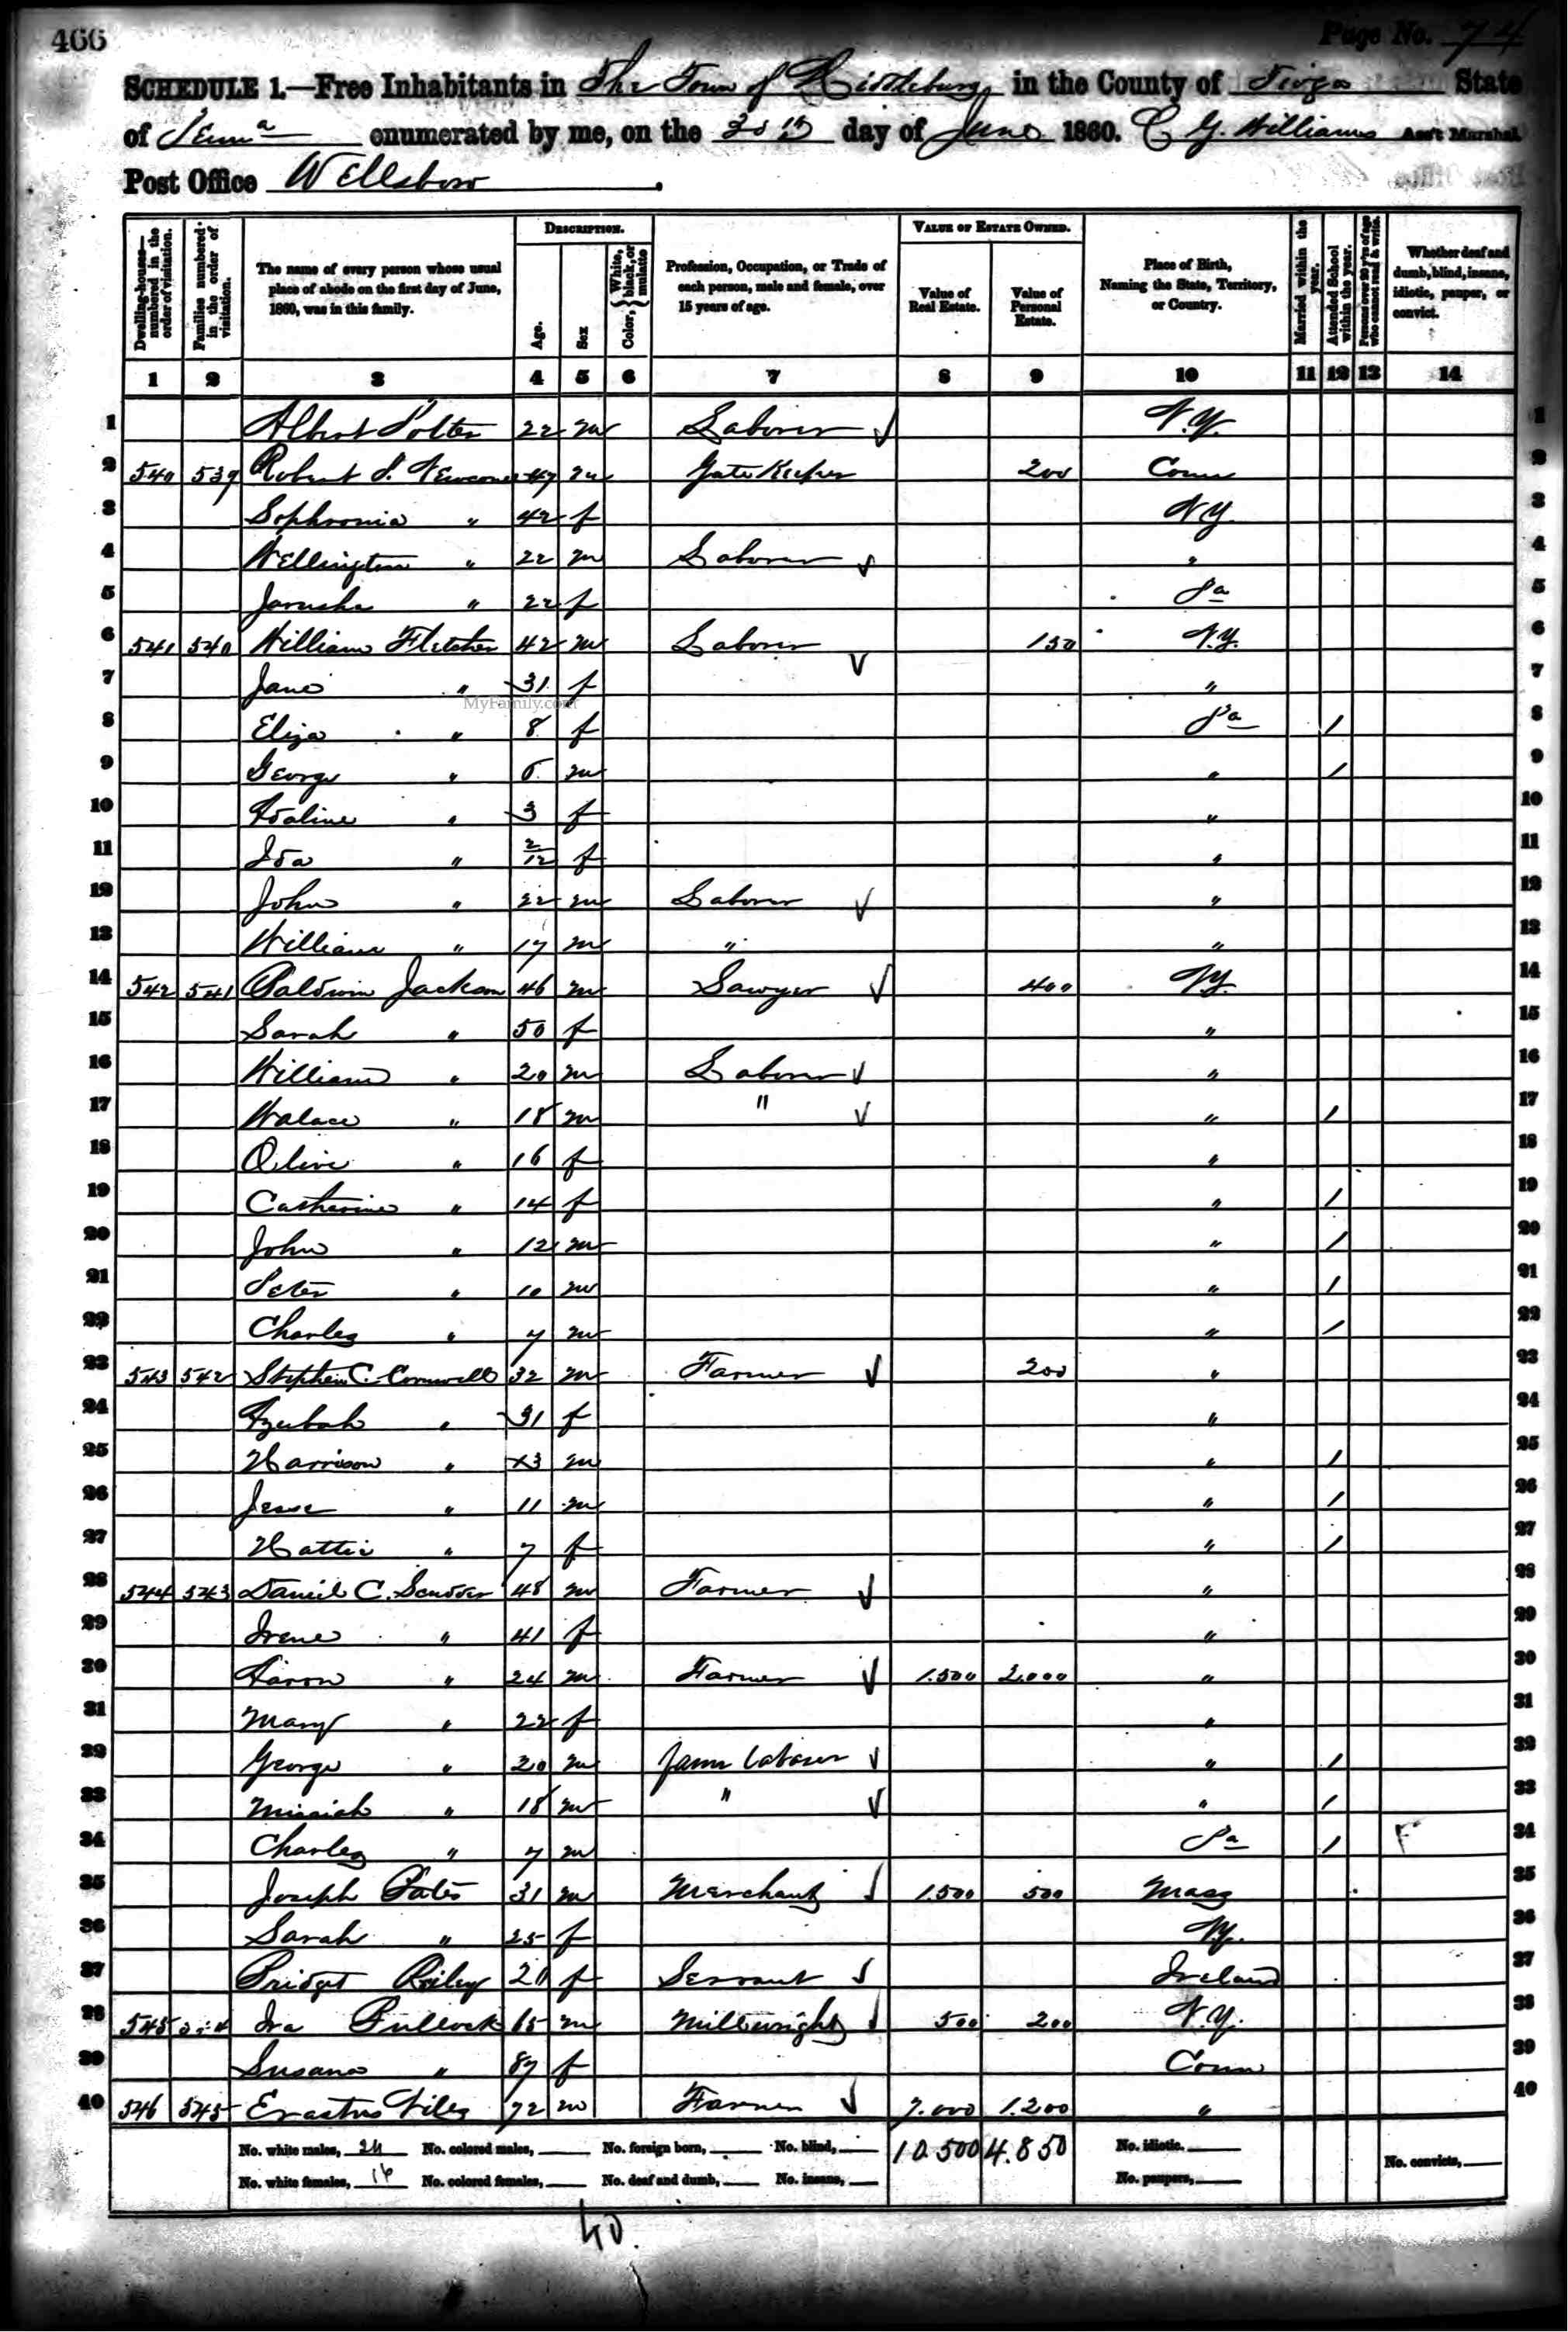 466
Page No. 74
SCHEDULE 1.—Free Inhabitants in The Town of Middlebury in the County of Tioga State
of Penna enumerated by me, on the 30th day of June 1860. C. G. Williams Ass't Marshal.
Post Office Wellsboro.
Dwelling-houses—numbered in the order of visitation.
Families numbered in the order of visitation.
The name of every person whose usual place of abode on the first day of June, 1860, was in this family.
DESCRIPTION.
Age.
Sex
Color, { White, black, or mulatto
Profession, Occupation, or Trade of each person, male and female, over 15 years of age.
VALUE OF ESTATE OWNED.
Value of Real Estate.
Value of Personal Estate.
Place of Birth, Naming the State, Territory, or Country.
Married within the year.
Attended School within the year.
Persons over 20 y'rs of age who cannot read & write.
Whether deaf and dumb, blind, insane, idiotic, pauper, or convict.
1 2 3 4 5 6 7 8 9 10 11 12 13 14
1 Albert Potter 22 m Laborer N.Y. 1
2 540 539 Robert S. Newcomer 47 m Gate Keeper 200 Conn 2
3 Sophronia " 42 f NY 3
4 Wellington " 22 m Laborer " 4
5 Jarusha " 22 f Pa 5
6 541 540 William Fletcher 42 m Laborer 150 N.Y. 6
7 Jane " 31 f " 7
MyFamily.com
8 Eliza " 8 f Pa / 8
9 George " m " / 9
10 Adaline " 3 f " 10
11 Ida " 2/12 f " 11
12 John " 22 m Laborer " 12
13 William " 17 m " " 13
14 542 541 Baldwin Jackson 46 m Sawyer 400 NY. 14
15 Sarah " 50 f " 15
16 William " 20 m Laborer " 16
17 Walace " 18 m " " / 17
18 Olive " 16 f " 18
19 Catharine " 14 f " / 19
20 John " 12 m " / 20
21 Peter " 10 m " / 21
22 Charles " 7 m " / 22
23 543 542 Stephen C. Cornwell 32 m Farmer 200 " 23
24 Azubah " 31 f " 24
25 Harrison " 13 m " / 25
26 Jesse " 11 m " / 26
27 Hattie " 7 f " / 27
28 544 543 Daniel C. Scudder 48 m Farmer " 28
29 Irene " 41 f " 29
30 Aaron " 24 m Farmer 1.500 2.000 " 30
31 Mary " 22 f " 31
32 George " 20 m Farm Laborer " / 32
33 " 18 m " " / 33
34 Charles " 7 m Pa / F 34
35 Joseph Bates 31 m Merchant 1.500 500 Mass 35
36 Sarah " 25 f NY. 36
37 Bridget Riley 20 f Servant Ireland 37
38 545 544 Ira Bullock 65 m Millwright 500 200 N.Y. 38
39 Susana " 87 f Conn 39
40 546 545 Erastus Niles 72 m Farmer 7.000 1.200 " 40
No. white males, 24 No. colored males, No. foreign born, No. blind, 10.500 4.850 No. idiotic.
No. white females, 16 No. colored females, No. deaf and dumb, No. insane, No. paupers, No. convicts,
40.